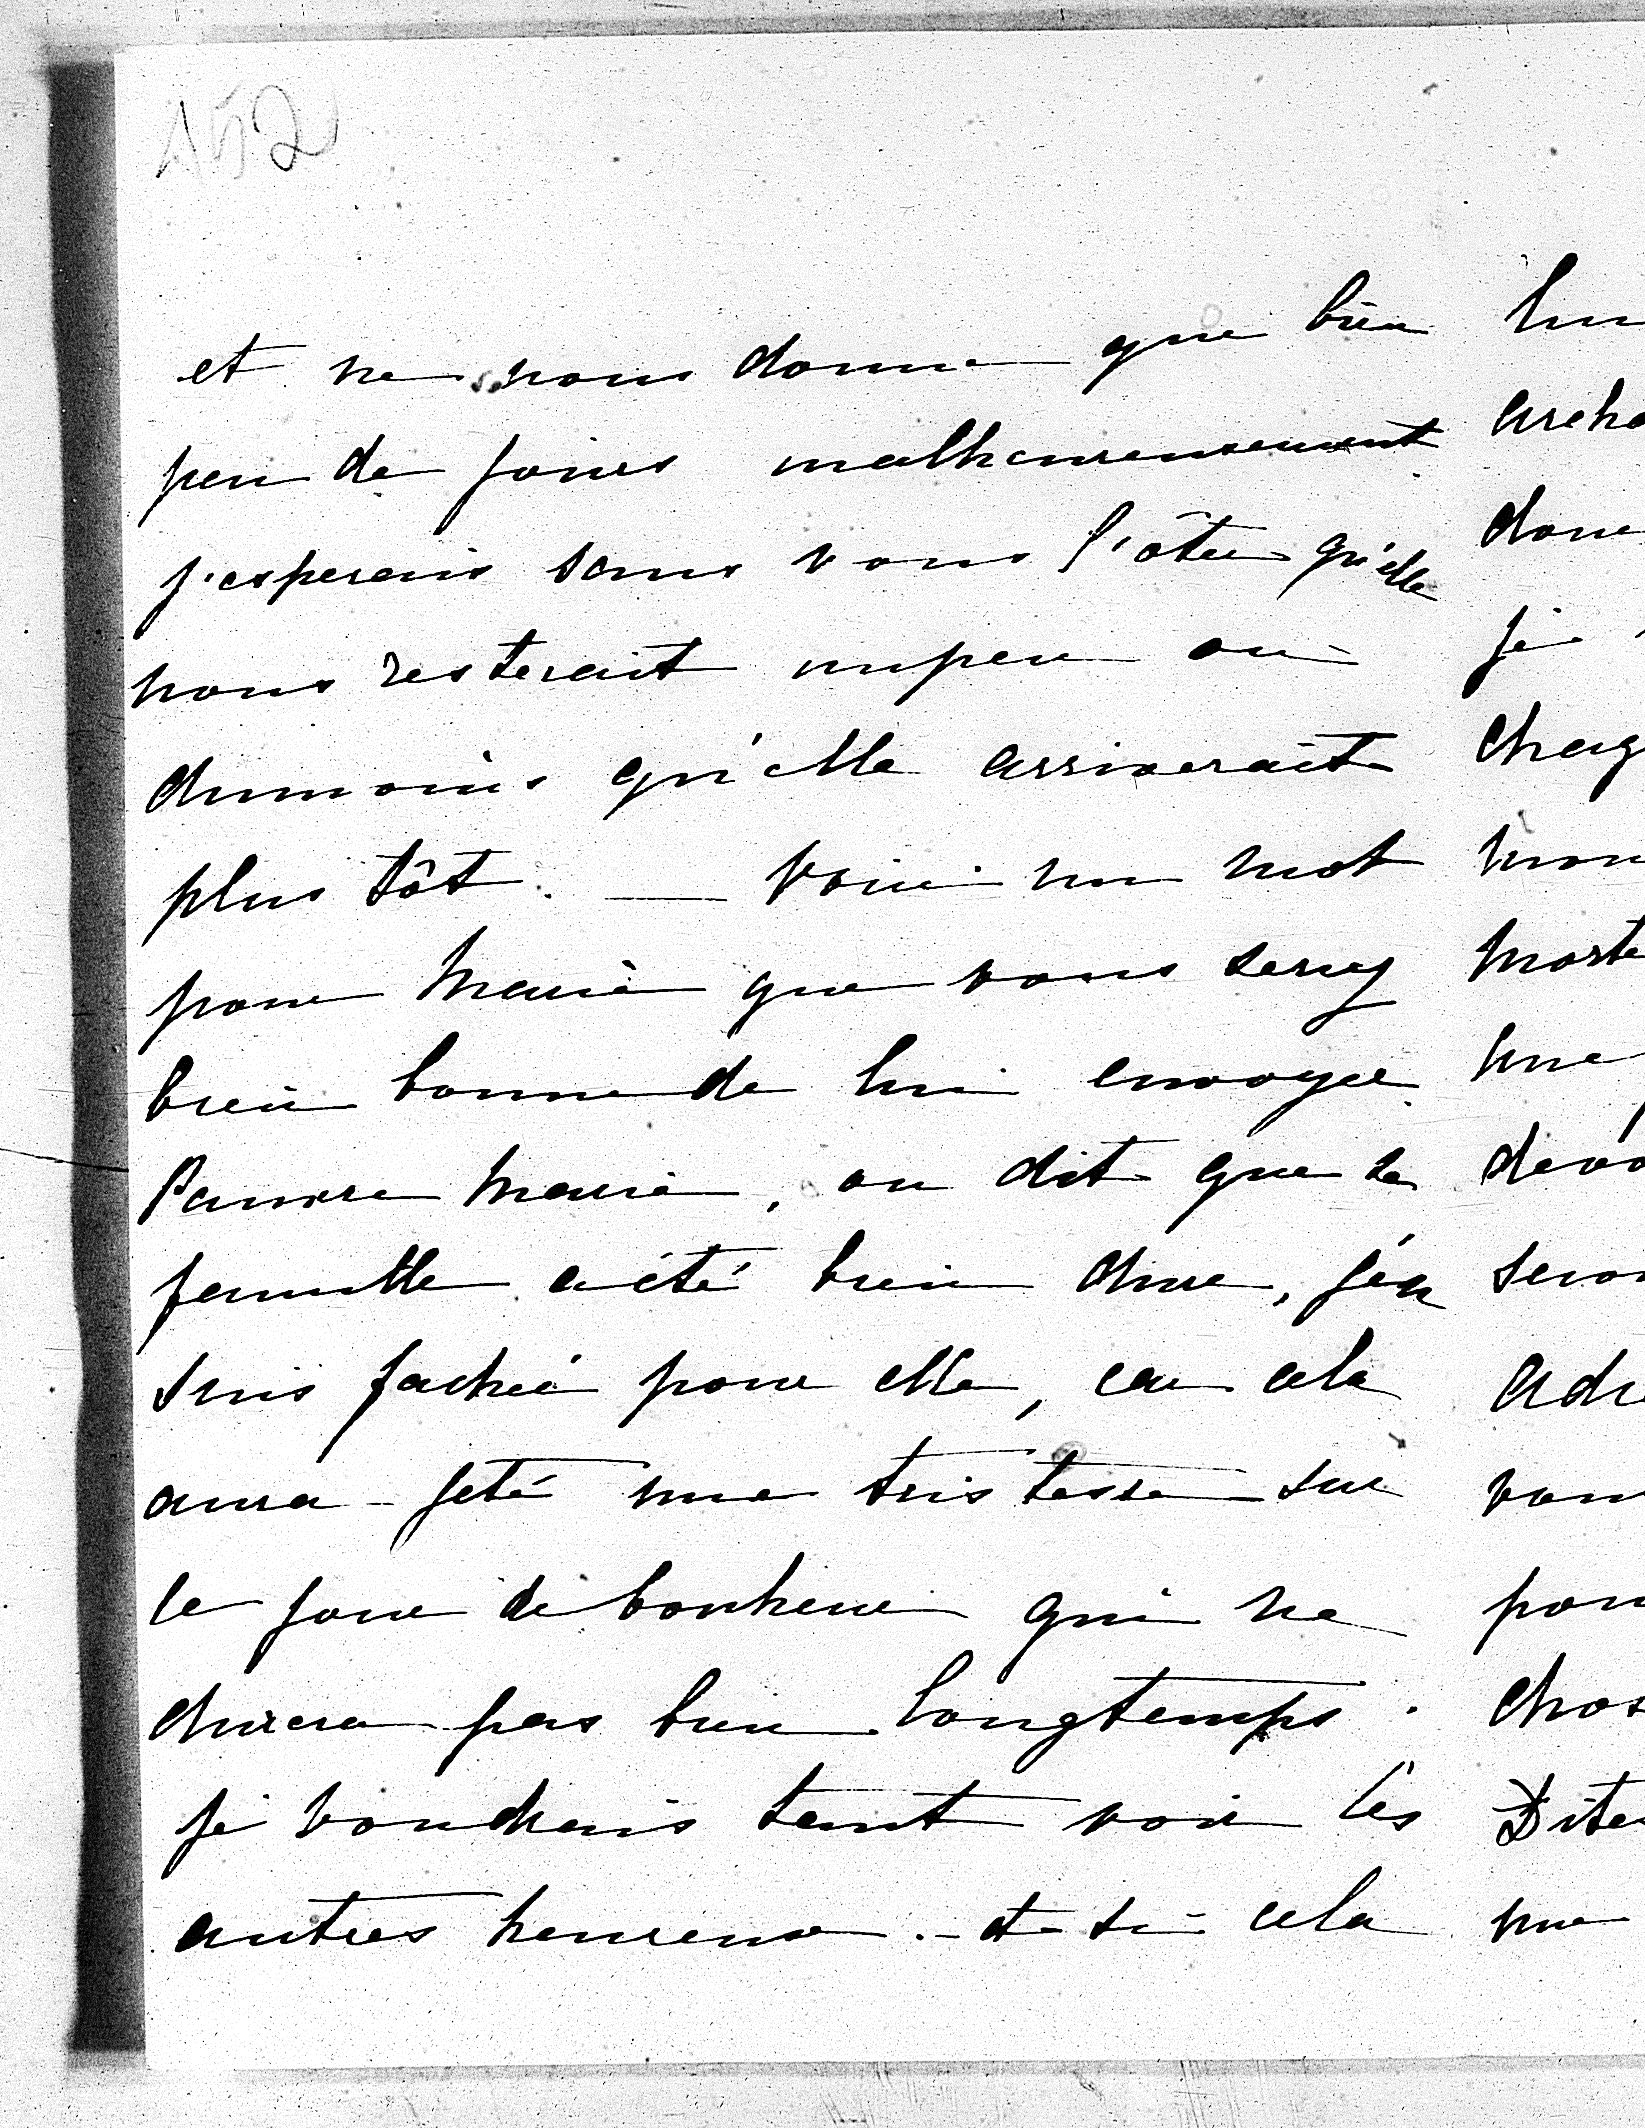 152
et ne nous donne que bien
peu de jours malheureusement
j'esperais sans vous l'ôter qu'elle
nous resterait unpeu ou
dumoins qu'elle arriverait
plus tôt. — Voici un mot
pour Marie que vous serez
bien bonne de lui envoyer.
Pauvre Marie, on dit que sa
famille a été bien dure, j'en
suis fachée pour elle, car cela
aura jeté une tristesse sur
le jour de bonheur qui ne
durera pas bien longtemps.
je voudrais tant voir les
autres heureux. - et si cela
archa
donc
je
chag
mon
morte
une
dévo
serai
adre
vous
pou
chos
Dites
une